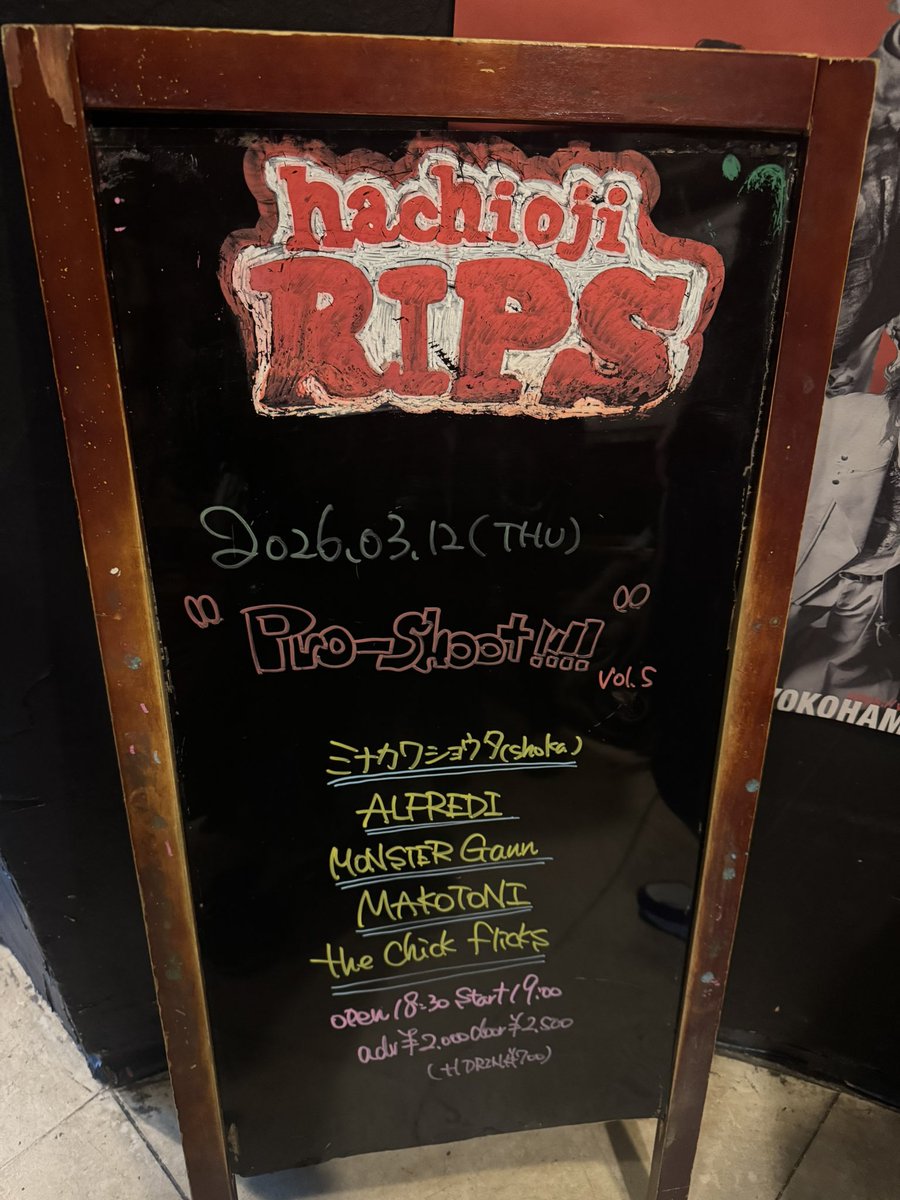 hachioji
RIPS
2026.03.12(THU)
"Pro-Shoot!!!!"
vol.5
ミナカワショウタ(shoka)
ALFREDI
MONSTER Gann
MAKOTONI
the Chick flicks
open 18:30 Start 19:00
adv ¥2.000 door ¥2.500
(+1 DRINK¥700)
YOKOHAM